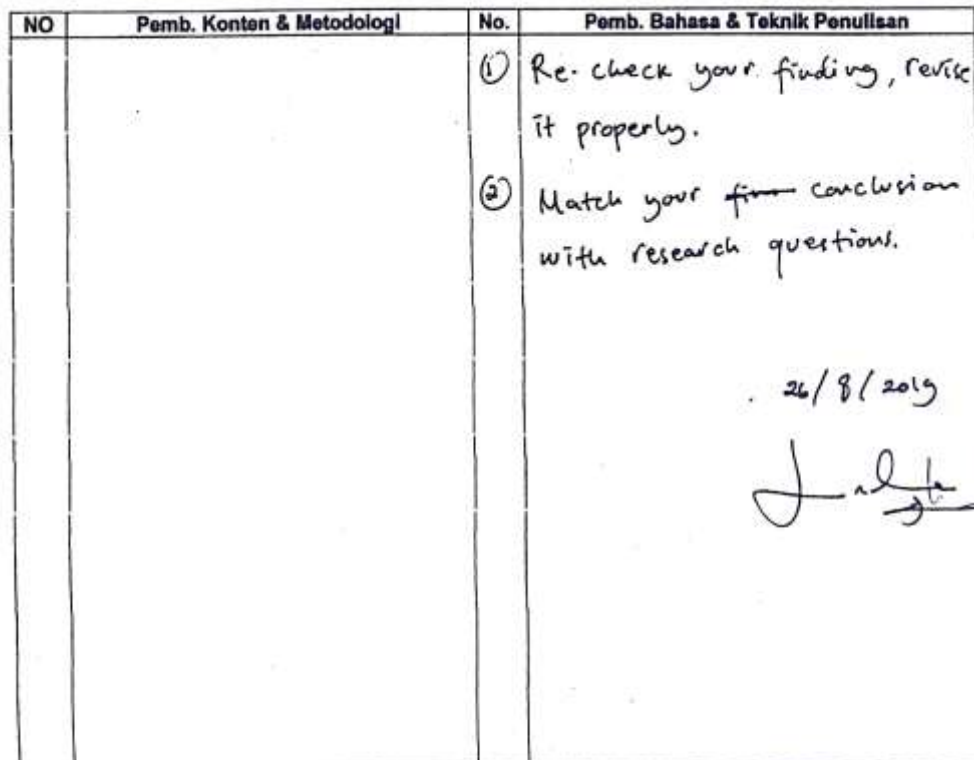 NO Pemb. Konten & Metodologi No. Pemb. Bahasa & Teknik Penulisan
① Re-check your finding, revise
it properly.
② Match your conclusion
with research questions.
26/8/2019